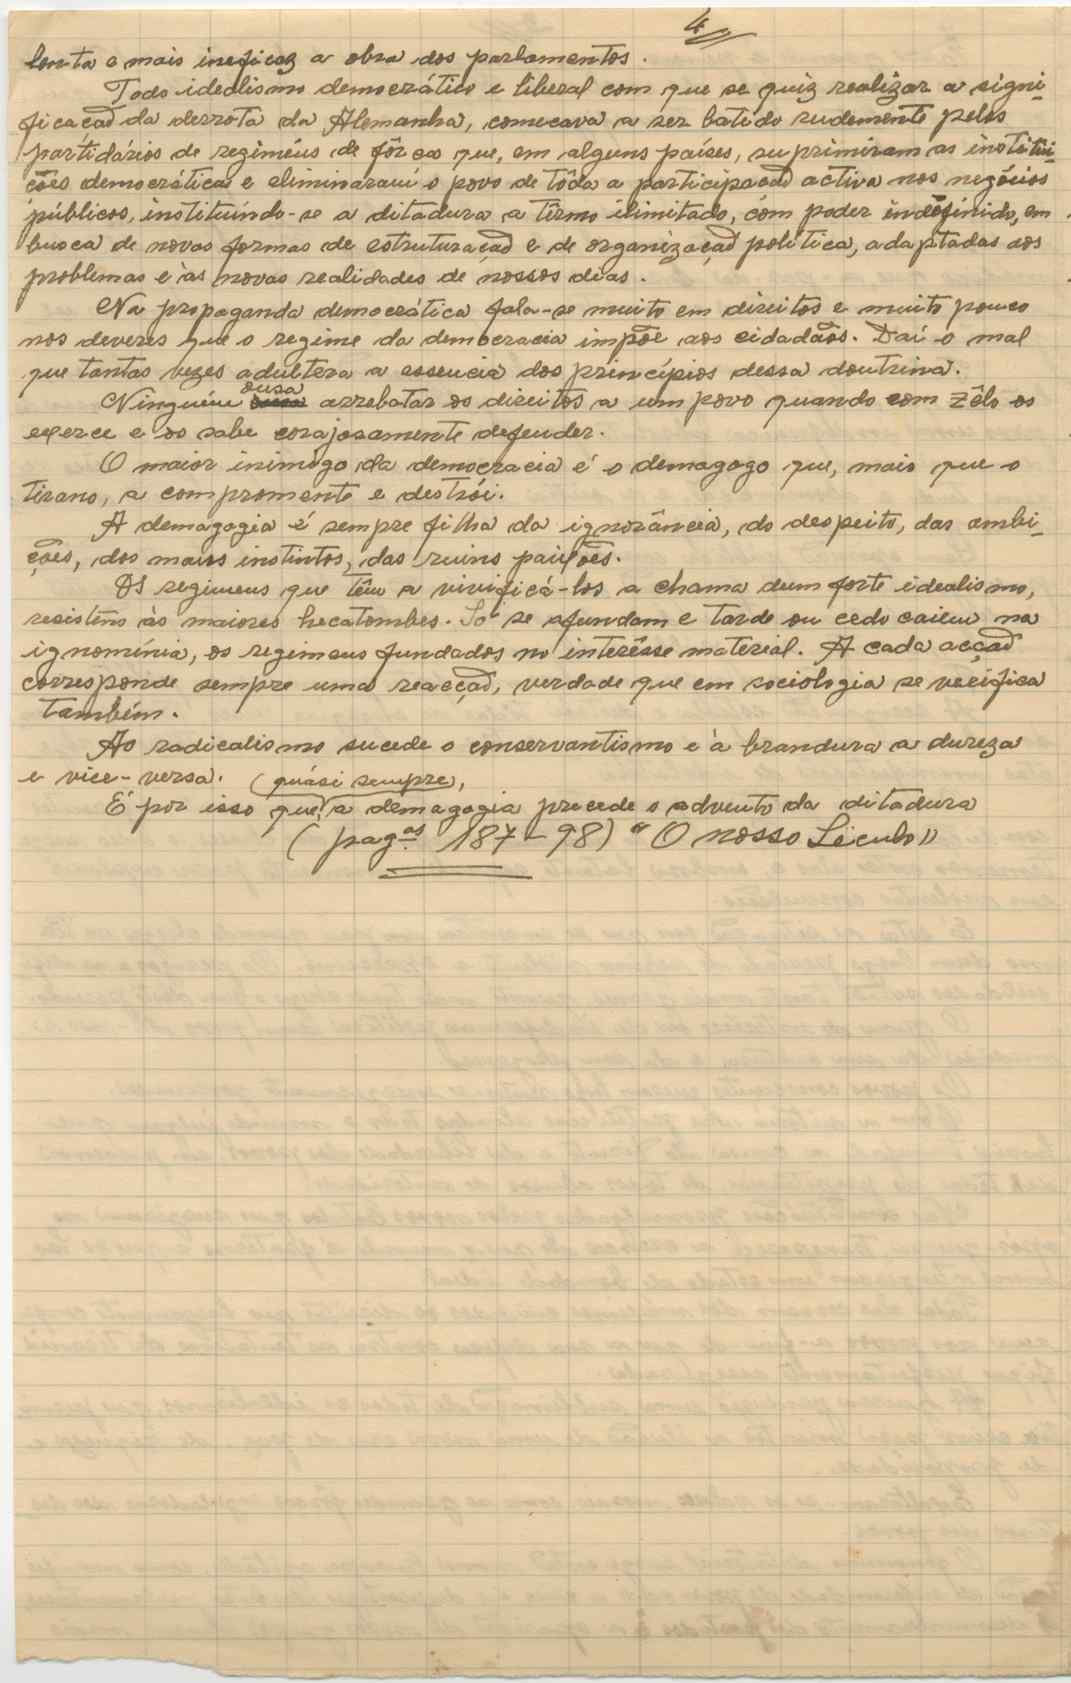 4
lenta e mais ineficaz a obra dos parlamentos.
Todo idealismo democrático e liberal com que se quiz realizar a signi-
ficação da derrota da Alemanha, começava a ser batido rudemente pelos
partidários de regimens de fôrça que, em alguns países, suprimiram as institui-
ções democráticas e eliminaram o povo de tôda a participação activa nos negócios
públicos, instituíndo-se a ditadura a têrmo ilimitado, com poder indefinido, em
busca de novas formas de estruturação e de organização política, adaptadas aos
problemas e às novas realidades de nossos dias.
Na propaganda democrática fala-se muito em direitos e muito pouco
nos deveres que o regime da democracia impõe aos cidadãos. Daí o mal
que tantas vezes adultera a essencia dos princípios dessa doutrina.
Ninguém ousa arrebatar os direitos a um povo quando com zêlo os
exerce e os sabe corajosamente defender.
O maior inimigo da democracia é o demagogo que, mais que o
tirano, a compromente e destrói.
A demagogia é sempre filha da ignorância, do despeito, das ambi-
ções, dos maus instintos, das ruins paixões.
Os regimens que têm a vivificá-los a chama dum forte idealismo,
resistem às maiores hecatombes. Só se afundam e tarde ou cedo caiem na
ignomínia, os regimens fundados no interêsse material. A cada acção
corresponde sempre uma reacção, verdade que em sociologia se verifica
também.
Ao radicalismo sucede o conservantismo e à brandura a dureza
e vice-versa.
(quási sempre,
É por isso que, a demagogia precede o advento da ditadura
(pag.as 187-98) "O nosso Século"